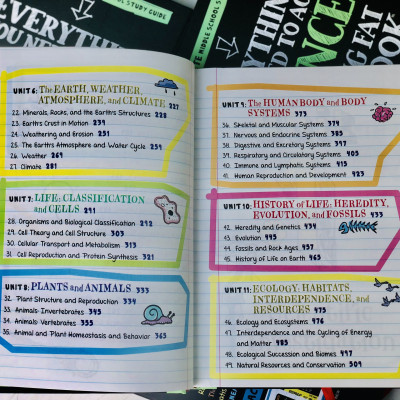 OL STUDY GUIDE
EVERYTH
YOU NEE
E MIDDLE SCHOOL S
YTHIN
D TO AC
NCE
G FAT
OOK
UNIT 6: The EARTH, WEATHER,
ATMOSPHERE, and CLIMATE 227
22. Minerals, Rocks, and the Earth's Structures 228
23. Earth's Crust in Motion 239
24. Weathering and Erosion 251
25. The Earth's Atmosphere and Water Cycle 259
26. Weather 269
27. Climate 281
UNIT 7: LIFE: CLASSIFICATION
and CELLS 291
28. Organisms and Biological Classification 292
29. Cell Theory and Cell Structure 303
30. Cellular Transport and Metabolism 313
31. Cell Reproduction and Protein Synthesis 321
UNIT 8: PLANTS and ANIMALS 333
32. Plant Structure and Reproduction 334
33. Animals: Invertebrates 345
34. Animals: Vertebrates 355
35. Animal and Plant Homeostasis and Behavior 365
UNIT 9: The HUMAN BODY and BODY
SYSTEMS 373
36. Skeletal and Muscular Systems 374
37. Nervous and Endocrine Systems 385
38. Digestive and Excretory Systems 397
39. Respiratory and Circulatory Systems 405
40. Immune and Lymphatic Systems 415
41. Human Reproduction and Development 423
UNIT 10: HISTORY of LIFE: HEREDITY,
EVOLUTION, and FOSSILS 433
42. Heredity and Genetics 434
43. Evolution 445
44. Fossils and Rock Ages 457
45. History of Life on Earth 465
UNIT 11: ECOLOGY: HABITATS,
INTERDEPENDENCE, and
RESOURCES 475
46. Ecology and Ecosystems 476
47. Interdependence and the Cycling of Energy
and Matter 485
48. Ecological Succession and Biomes 497
49. Natural Resources and Conservation 509